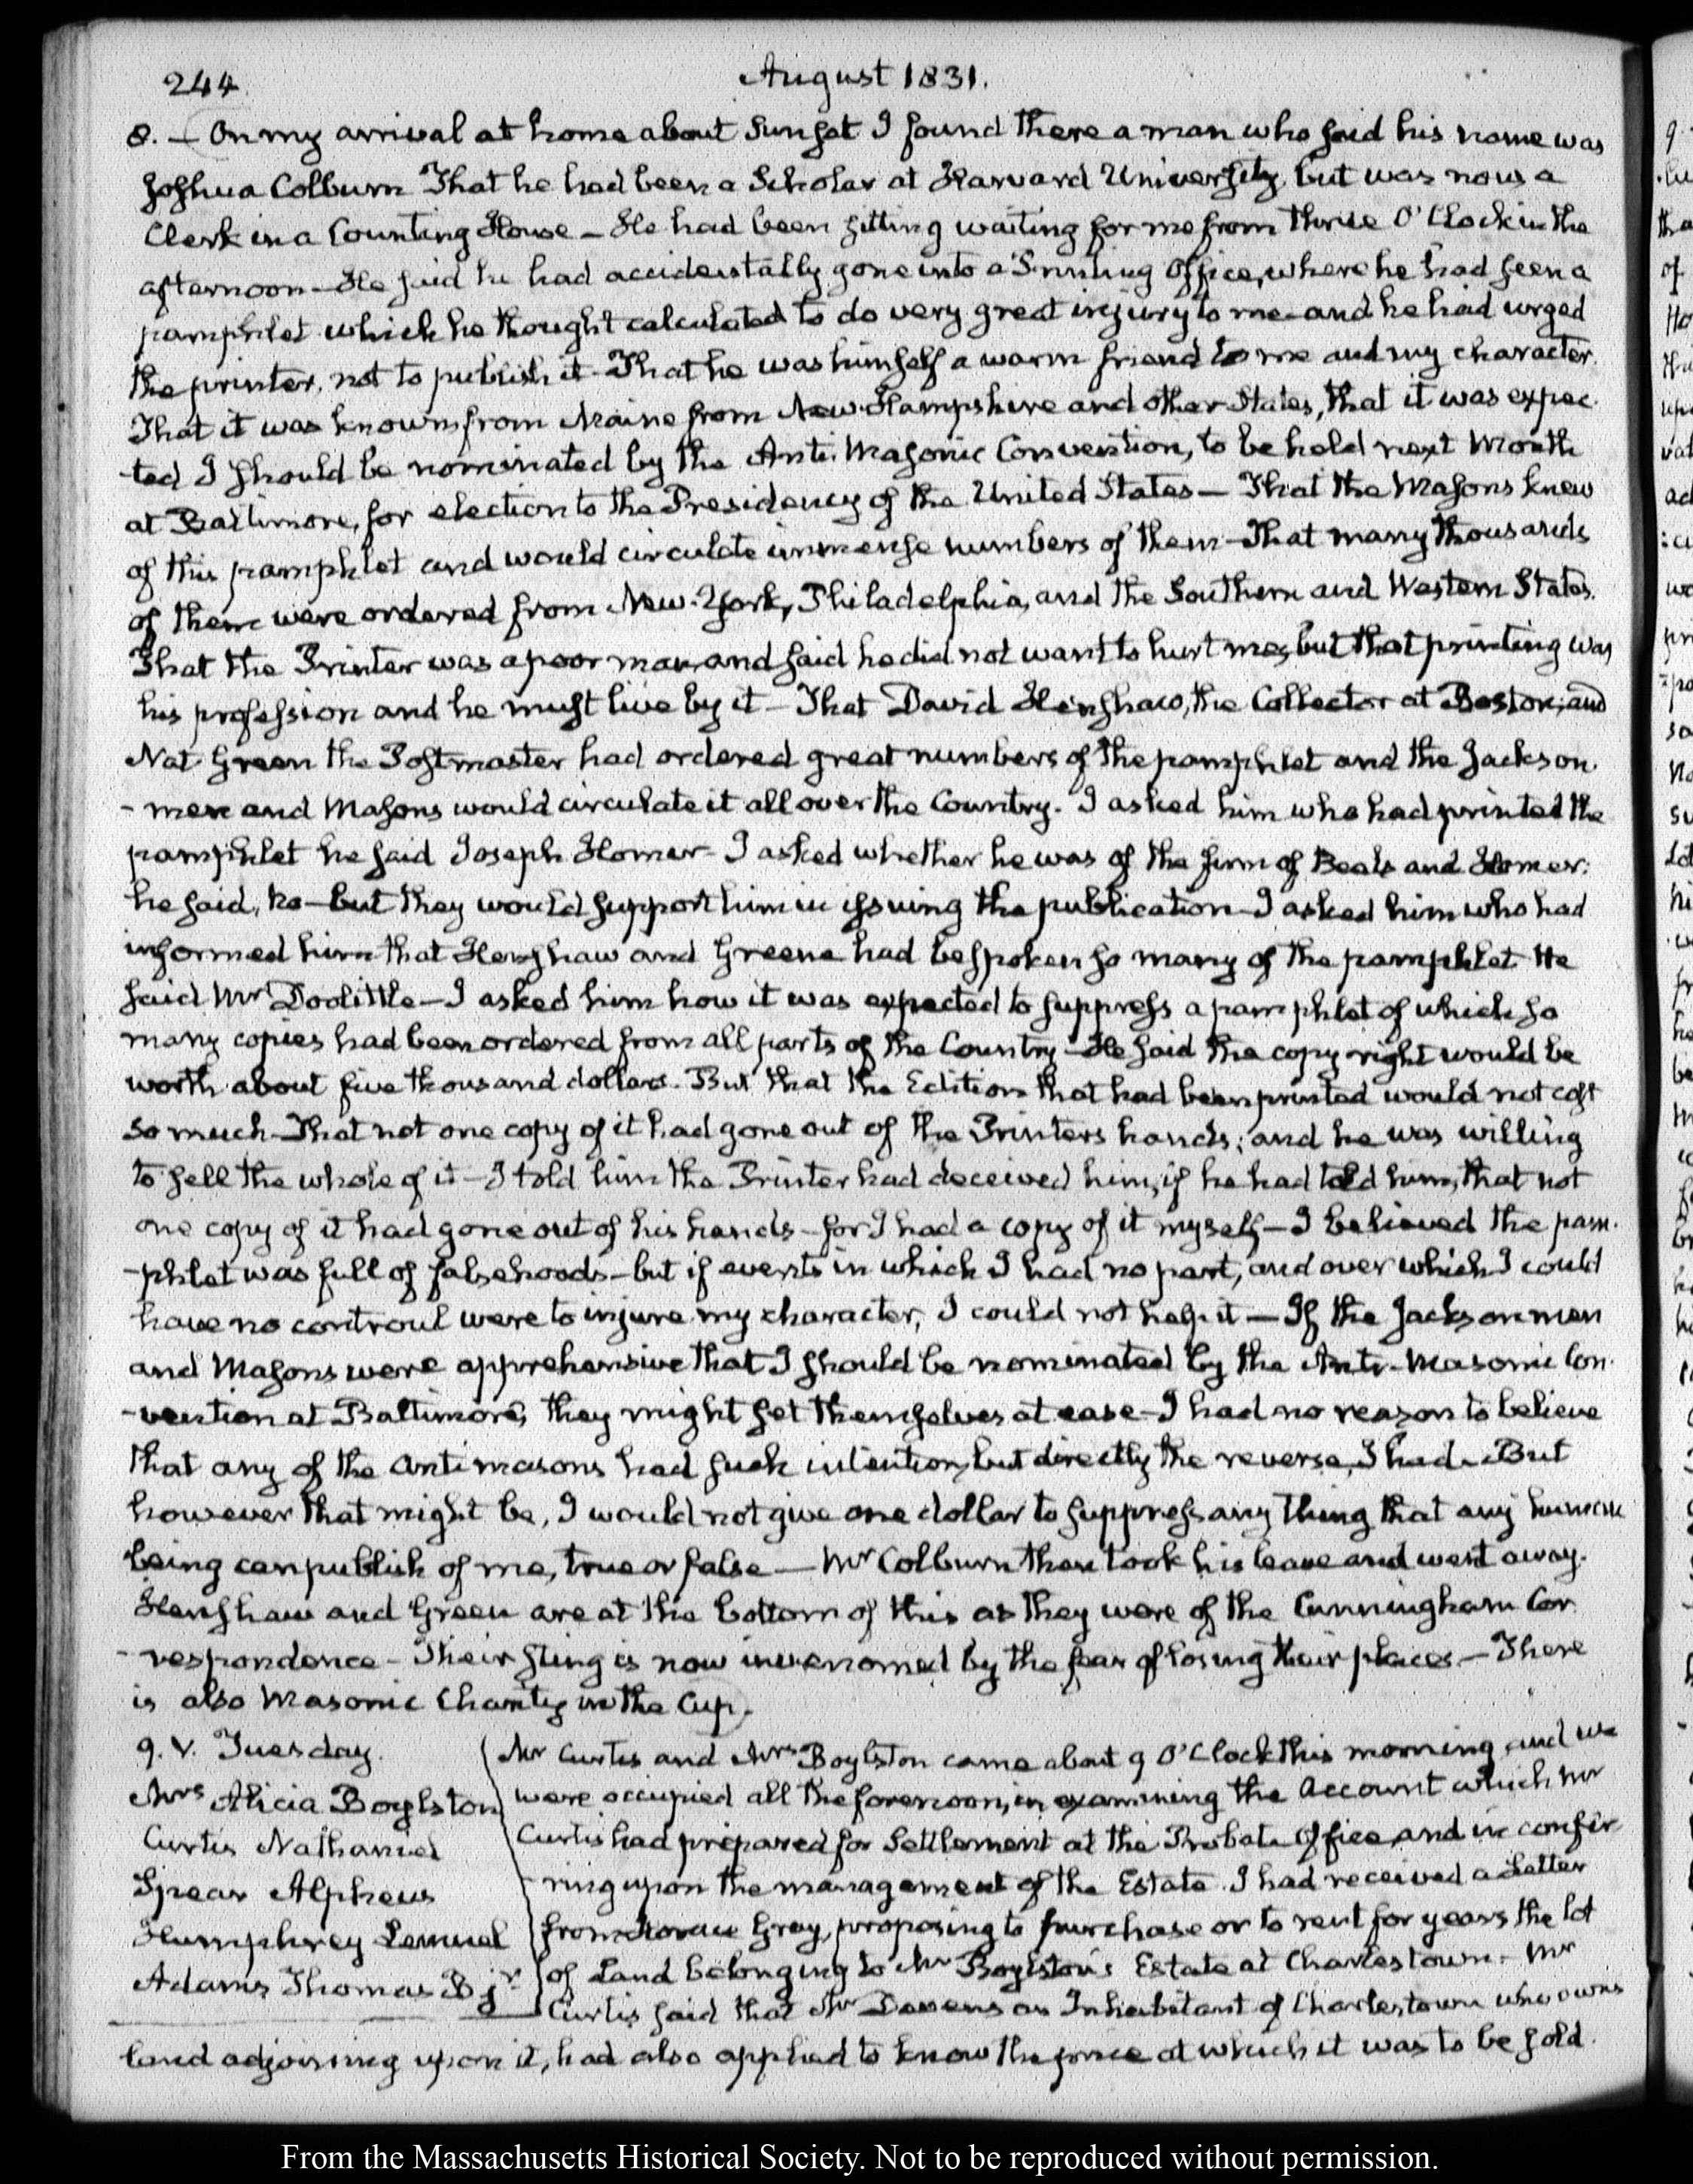 244.
August 1831.
8. — On my arrival at home about Sunset I found there a man who said his name was
Joshua Colburn That he had been a Scholar at Harvard University, but was now a
Clerk in a Counting House — He had been sitting waiting for me from three O'Clock in the
afternoon — He said he had accidentally gone into a Printing Office, where he had seen a
pamphlet which he thought calculated to do very great injury to me — and he had urged
the printer, not to publish it — That he was himself a warm friend to me and my character.
That it was known from Maine from New-Hampshire and other States, that it was expec-
-ted I should be nominated by the Anti-Masonic Convention, to be held next Month
at Baltimore, for election to the Presidency of the United States — That the Masons knew
of this pamphlet and would circulate immense numbers of them — That many thousands
of them were ordered from New-York, Philadelphia, and the Southern and Western States.
That the Printer was a poor man, and said he did not want to hurt me, but that printing was
his profession and he must live by it — That David Henshaw, the Collector at Boston; and
Nat Green the Postmaster had ordered great numbers of the pamphlet and the Jackson
-men and Masons would circulate it all over the Country. I asked him who had printed the
pamphlet he said Joseph Homer — I asked whether he was of the firm of Beals and Homer:
he said, no — but they would support him in issuing the publication — I asked him who had
informed him that Henshaw and Greene had bespoken so many of the pamphlet He
said Mr Doolittle — I asked him how it was expected to suppress a pamphlet of which so
many copies had been ordered from all parts of the Country — He said the copy right would be
worth about five thousand dollars — But that the Edition that had been printed would not cost
so much — That not one copy of it had gone out of the Printers hands; and he was willing
to sell the whole of it — I told him the Printer had deceived him, if he had told him, that not
one copy of it had gone out of his hands — for I had a copy of it myself — I believed the pam-
-phlet was full of falsehoods — but if events in which I had no part, and over which I could
have no controul were to injure my character, I could not help it — If the Jackson men
and Masons were apprehensive that I should be nominated by the Anti-Masonic Con-
-vention at Baltimore, they might set themselves at ease — I had no reason to believe
that any of the antimasons had such intention, but directly the reverse, I had — But
however that might be, I would not give one dollar to suppress any thing that any human
being can publish of me, true or false — Mr Colburn then took his leave and went away.
Henshaw and Green are at the bottom of this as they were of the Cunningham Cor-
-respondence — Their sting is now invenomed by the fear of losing their places — There
is also Masonic Charity in the Cup.
9. V. Tuesday.
Mrs Alicia Boylston
Curtis Nathaniel
Spear Alpheus
Humphrey Lemuel
Adams Thomas B jr
Mr Curtis and Mrs Boylston came about 9 O'Clock this morning, and we
were occupied all the forenoon, in examining the Account which Mr
Curtis had prepared for Settlement at the Probate Office, and in confer-
-ring upon the management of the Estate. I had received a Letter
from Horace Gray, proposing to purchase or to rent for years the lot
of Land belonging to Mr Boylston's Estate at Charlestown — Mr
Curtis said that Mr Devens an Inhabitant of Charlestown who owns
land adjoining upon it, had also applied to know the price at which it was to be sold.
From the Massachusetts Historical Society. Not to be reproduced without permission.